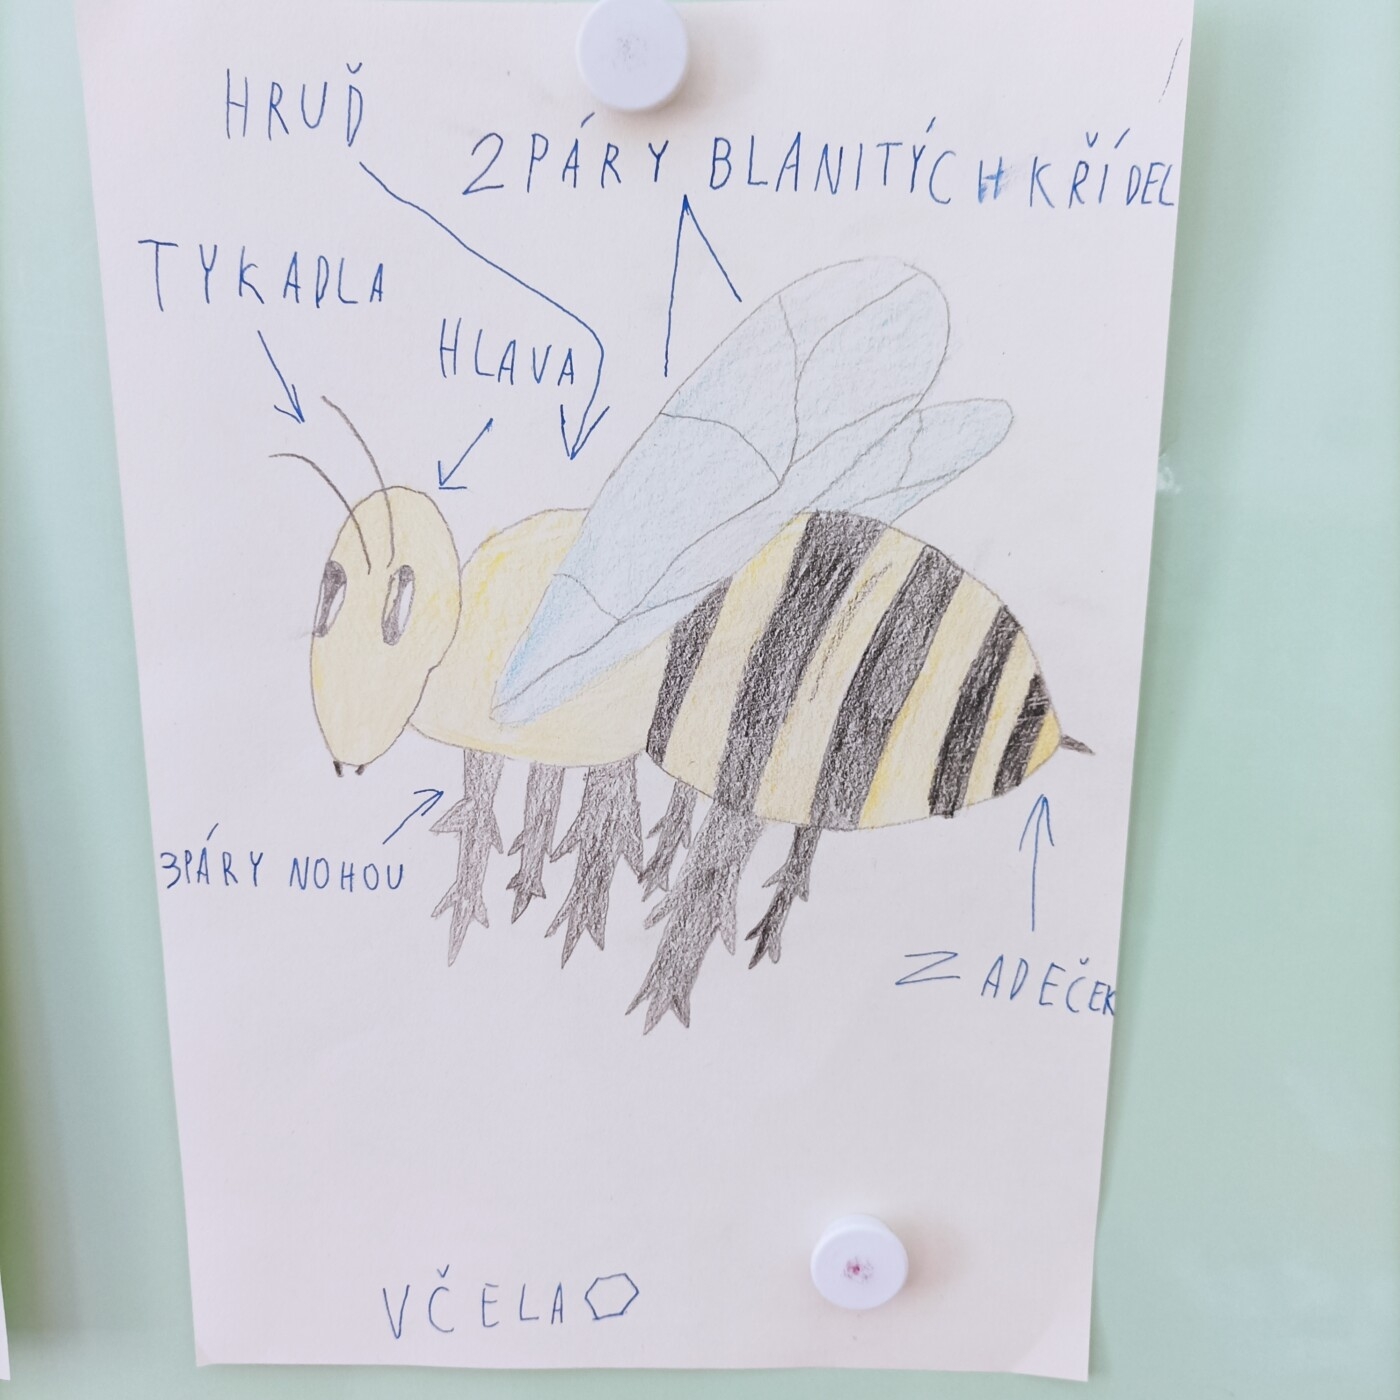 HRUĎ
2 PÁRY BLANITÝCH KŘÍDEL
TYKADLA
HLAVA
3 PÁRY NOHOU
ZADEČEK
VČELA